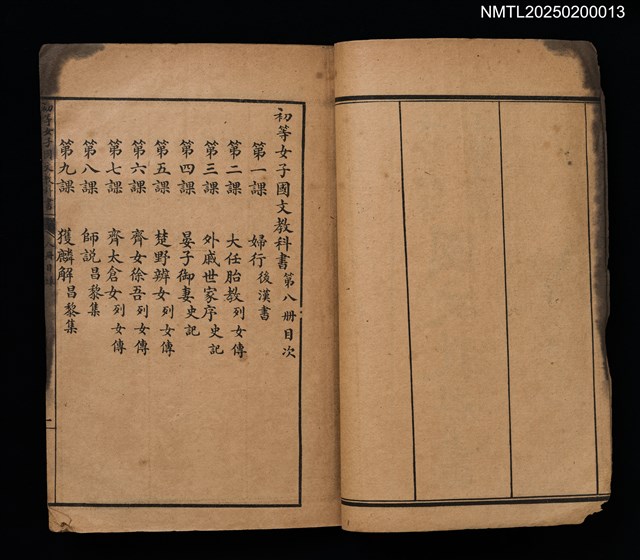 NMTL20250200013
初等女子國文教科書第八册目次
第一課 婦行後漢書
第二課 大任胎教列女傳
第三課 外戚世家序史記
第四課 晏子御妻史記
第五課 楚野辨女列女傳
第六課 齊女徐吾列女傳
第七課 齊太倉女列女傳
第八課 師説昌黎集
第九課 獲麟解昌黎集